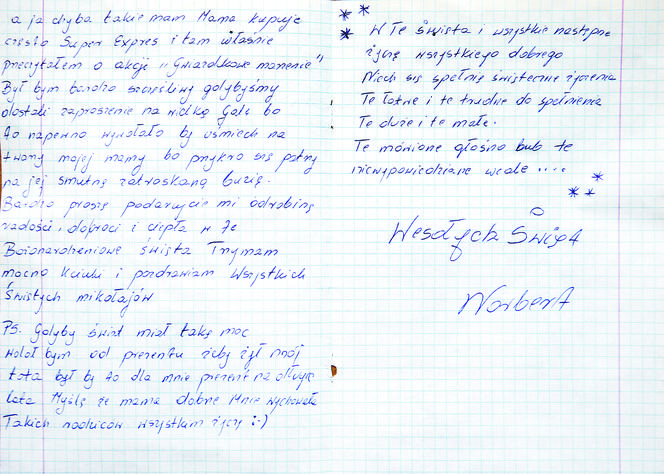 a ja chyba takie mam Mama kupuje
często Super Expres i tam właśnie
przeczytałem o akcji „Gwiazdkowe marzenie"
Był bym bardzo szczęśliwy gdybyśmy
dostali zaproszenie na wielką Galę bo
to napewno wywołało by uśmiech na
twarzy mojej mamy bo przykro się patrzy
na jej smutną zatroskaną buzię.
Bardzo proszę podarujcie mi odrobinę
radości, dobroci i ciepła w te
Bożonarodzeniowe święta Trzymam
mocno kciuki i pozdrawiam wszystkich
Świętych mikołajów
PS. Gdyby świat miał taką moc
wolał bym od prezentu żeby żył mój
tata był by to dla mnie prezent na długie
lata Myślę że mama dobrze mnie wychowała
Takich rodziców wszystkim życzę :-)
W te święta i wszystkie następne
życzę wszystkiego dobrego
Niech się spełnią świąteczne życzenia
Te łatwe i te trudne do spełnienia
Te duże i te małe.
Te mówione głośno bub te
niewypowiedziane wcale ....
Wesołych Świąt
Norbert